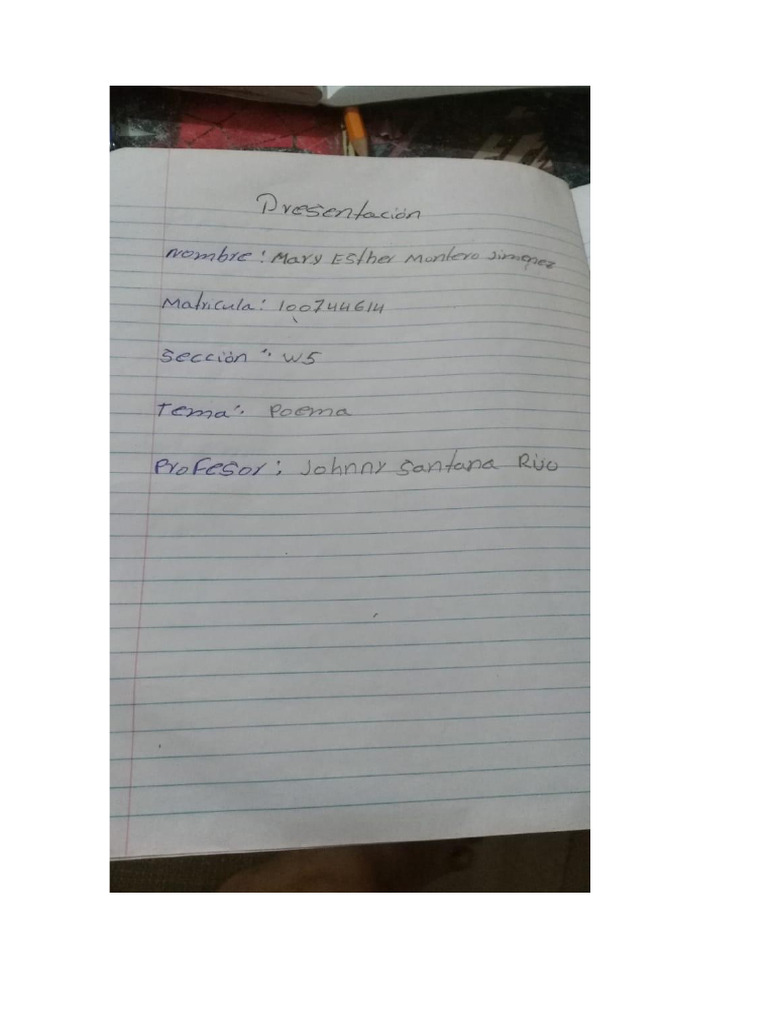 Presentación
Nombre: Mary Esther Montero Jimenez
Matricula: 100744614
Sección: W5
Tema: Poema
Profesor: Johnny Santana Rijo